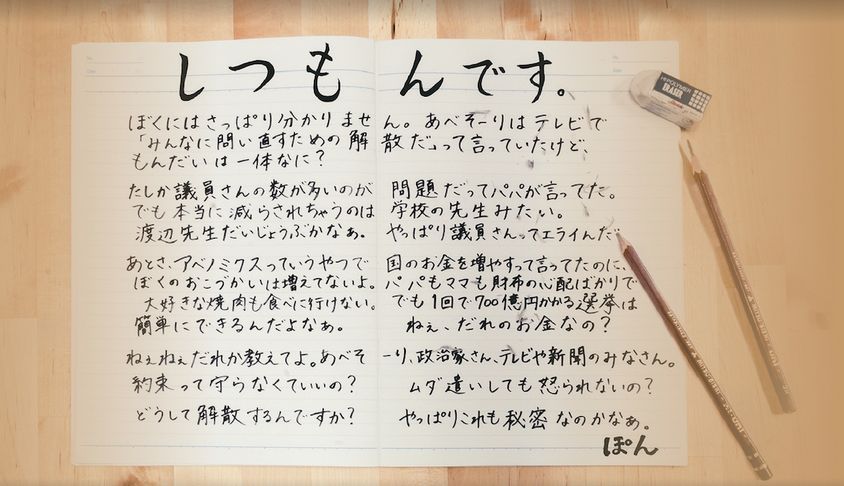 しつもんです。
ぼくにはさっぱり分かりません。あべそーりはテレビで
「みんなに問い直すための解散だ」って言っていたけど、
もんだいは一体なに？
たしか議員さんの数が多いのが問題だってパパが言ってた。
でも本当に減らされちゃうのは学校の先生みたい。
渡辺先生だいじょうぶかなぁ。やっぱり議員さんってエライんだ
あとさ、アベノミクスっていうやつで国のお金を増やすって言ってたのに、
ぼくのおこづかいは増えてないよ。パパもママも財布の心配ばかりで
大好きな焼肉も食べに行けない。でも1回で700億円かかる選挙は
簡単にできるんだよなぁ。ねぇ、だれのお金なの？
ねぇねぇだれか教えてよ。あべそーり、政治家さん、テレビや新聞のみなさん。
約束って守らなくていいの？ムダ遣いしても怒られないの？
どうして解散するんですか？やっぱりこれも秘密なのかなぁ。
ぽん
HI-POLYMER
ERASER